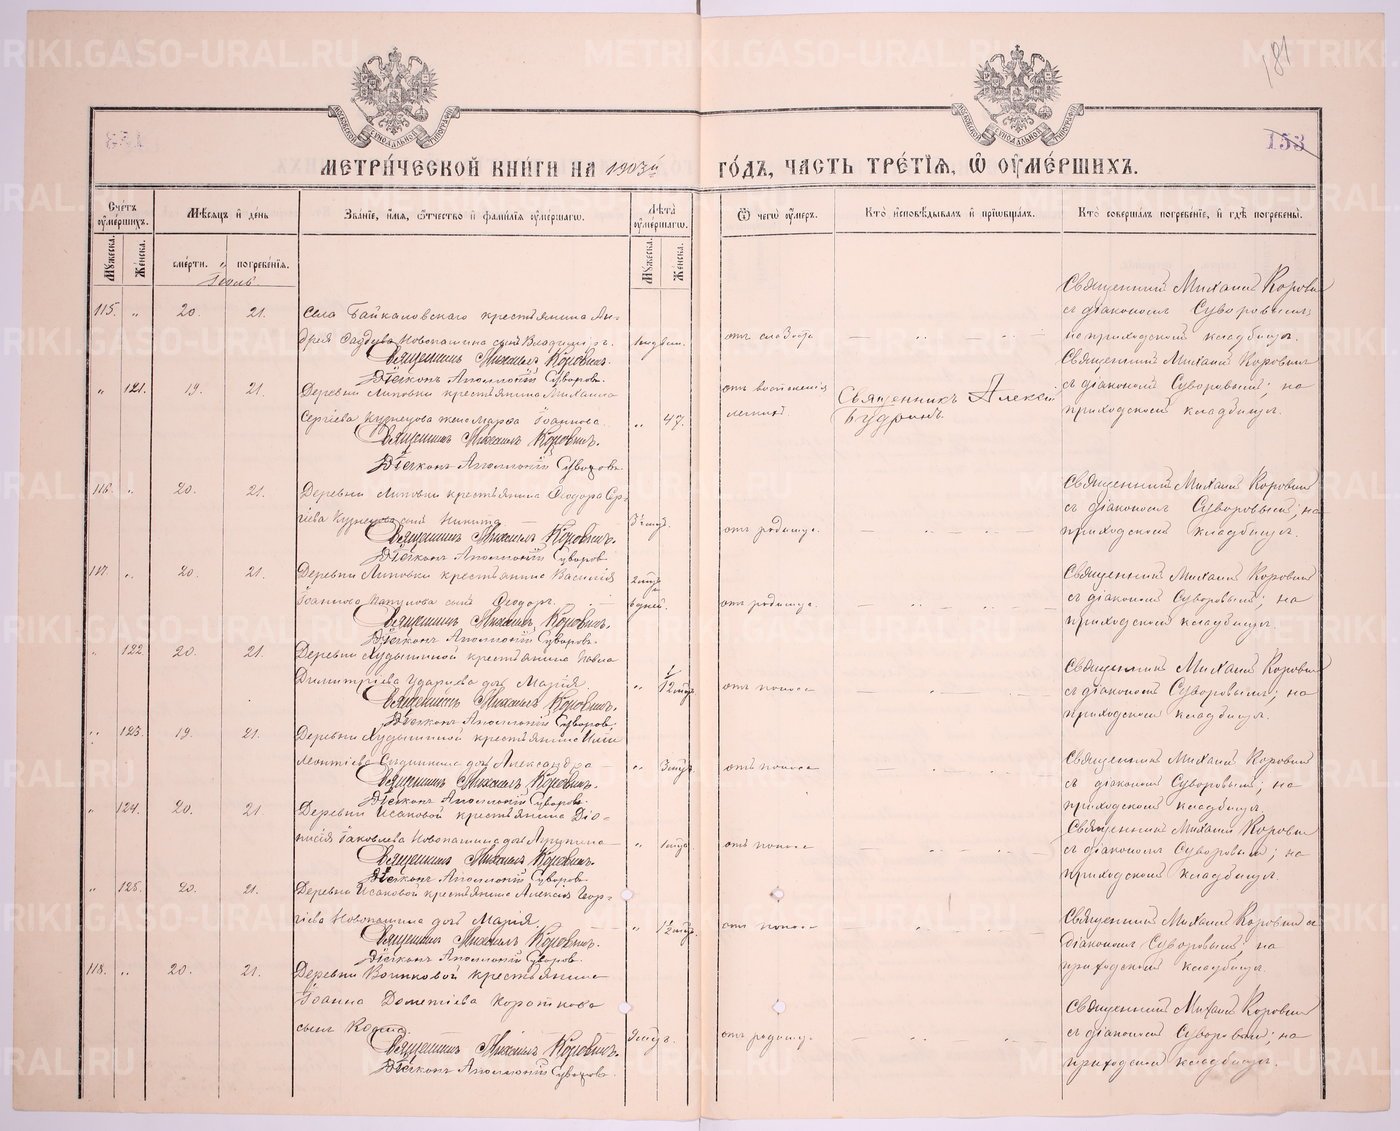 181
153
МЕТРИ́ЧЕСКОЙ КНИ́ГИ НА 1903й ГО́ДЪ, ЧАСТЬ ТРЕ́ТІѦ, Ѽ ОУМЕ́РШИХЪ.
Счетъ оумершихъ.
Мужеска.
Женска.
Мѣсяцъ и день
смерти.
погребенїя.
Іюль
Званїе, имя, ѿчество и фамилїя оумершагѡ.
Лѣта оумершагѡ.
Мужеска.
Женска.
Ѿ чегѡ оумеръ.
Кто исповѣдывалъ и прїобщалъ.
Кто совершалъ погребенїе, и гдѣ погребены.
115. " 20. 21.
Села Байкаловскаго крестьянина Ан-
дрея Новопашина сынъ Владиміръ.
Священникъ Михаилъ Коровинъ.
Діаконъ Аполлоній Суворовъ.
отъ слабости
Священникъ Михаилъ Коровинъ
съ діакономъ Суворовымъ;
на приходскомъ кладбищѣ.
" 121. 19. 21.
Деревни Липовки крестьянина Михаила
Сергіева Кузнецова жена Марѳа Іоаннова.
" 47.
Священникъ Михаилъ Коровинъ.
Діаконъ Аполлоній Суворовъ.
отъ воспаленія
легкихъ.
Священникъ Алексій
Будринъ.
Священникъ Михаилъ Коровинъ
съ діакономъ Суворовымъ; на
приходскомъ кладбищѣ.
116. " 20. 21.
Деревни Липовки крестьянина Ѳеодора Сер-
гіева Кузнецова сынъ Никита
Священникъ Михаилъ Коровинъ.
Діаконъ Аполлоній Суворовъ
отъ родимца.
Священникъ Михаилъ Коровинъ
съ діакономъ Суворовымъ; на
приходскомъ кладбищѣ.
117. " 20. 21.
Деревни Липовки крестьянина Василія
Іоаннова сынъ Ѳеодоръ.
2 мѣс.
6 дней.
Священникъ Михаилъ Коровинъ.
Діаконъ Аполлоній Суворовъ.
отъ родимца.
Священникъ Михаилъ Коровинъ
съ діакономъ Суворовымъ; на
приходскомъ кладбищѣ.
" 122. 20. 21.
Деревни Худышиной крестьянина Павла
Димитріева Ударцева дочь Марія
" 1/2 мѣс.
Священникъ Михаилъ Коровинъ.
Діаконъ Аполлоній Суворовъ.
отъ поноса
Священникъ Михаилъ Коровинъ
съ діакономъ Суворовымъ; на
приходскомъ кладбищѣ.
" 123. 19. 21.
Деревни Худышиной крестьянина Иліи
Леонтіева дочь Александра
" 3 мѣс.
Священникъ Михаилъ Коровинъ.
Діаконъ Аполлоній Суворовъ.
отъ поноса
Священникъ Михаилъ Коровинъ
съ діакономъ Суворовымъ; на
приходскомъ кладбищѣ.
" 124. 20. 21
Деревни Исаковой крестьянина Діо-
нисія Іаковлева Новопашина дочь
" 1 мѣс.
Священникъ Михаилъ Коровинъ.
Діаконъ Аполлоній Суворовъ.
отъ поноса
Священникъ Михаилъ Коровинъ
съ діакономъ Суворовымъ; на
приходскомъ кладбищѣ.
" 125. 20. 21.
Деревни Исаковой крестьянина Алексія Геор-
гіева Новопашина дочь Марія
" 1 1/2 мѣс.
Священникъ Михаилъ Коровинъ.
Діаконъ Аполлоній Суворовъ.
отъ поноса
Священникъ Михаилъ Коровинъ съ
діакономъ Суворовымъ, на
приходскомъ кладбищѣ.
118. " 20. 21.
Деревни Вошковой крестьянина
Іоанна Дометіева Короткова
сынъ
9 мѣс.
Священникъ Михаилъ Коровинъ.
Діаконъ Аполлоній Суворовъ.
отъ родимц.
Священникъ Михаилъ Коровинъ
съ діакономъ Суворовымъ; на
приходскомъ кладбищѣ.
METRIKI.GASO-URAL.RU